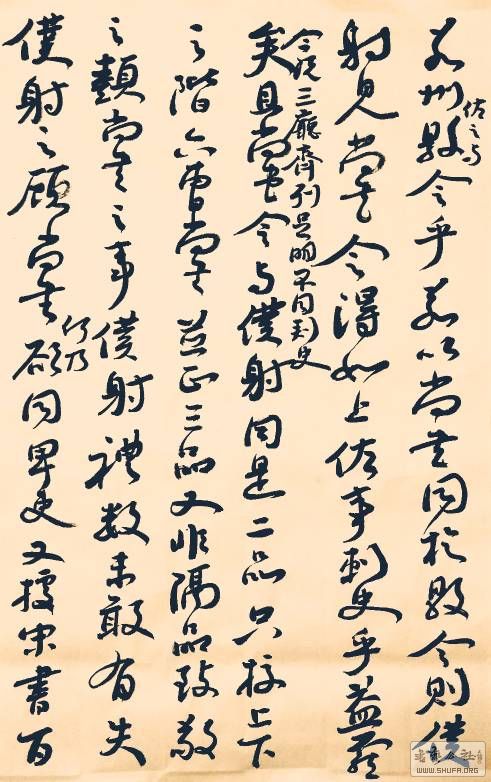 若州佐之与縣令乎若以尚書同於縣令則僕
射見尚書令得如上佐事刺史乎益
今既三廳齊列足明不同刺史
矣且尚書令与僕射同是二品只校上下
之階六曹尚書並正三品又非隔品致敬
之類尚書之事僕射禮數未敢有失
僕射之顧尚書何乃欲同卑吏又據宋書百
WWW.SHUFA.ORG